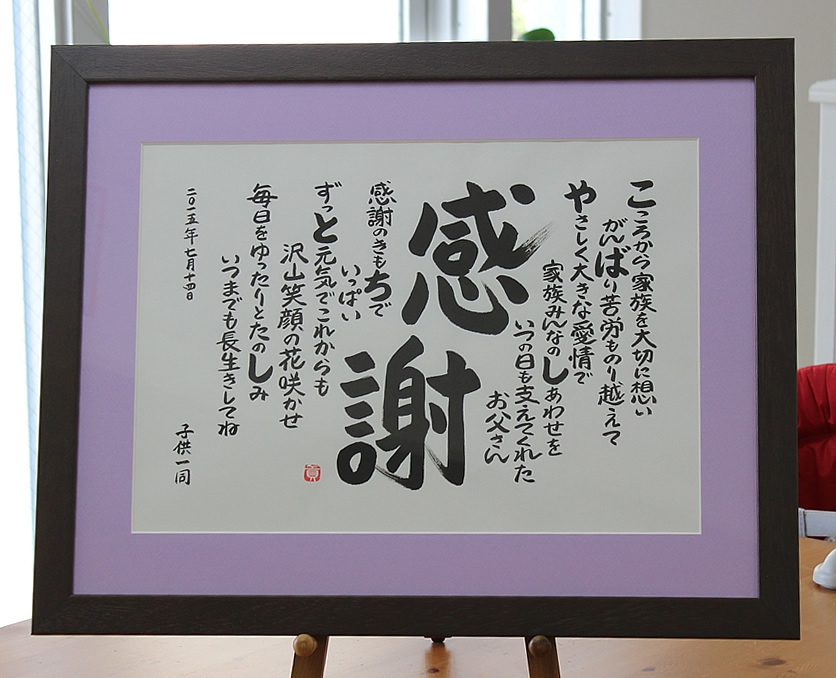 こころから家族を大切に想い
がんばり苦労ものり越えて
やさしく大きな愛情で
家族みんなのしあわせを
いつの日も支えてくれた
お父さん
感謝
感謝のきもちで
いっぱい
ずっと元気でこれからも
沢山笑顔の花咲かせ
毎日をゆったりとたのしみ
いつまでも長生きしてね
二〇一五年七月十四日
子供一同